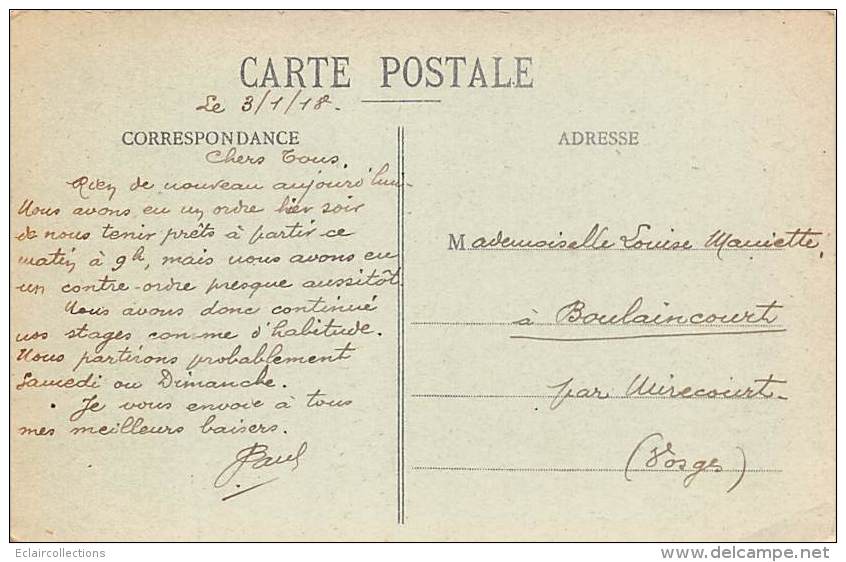 CARTE POSTALE
Le 3/1/18.
CORRESPONDANCE
Chers Tous.
Rien de nouveau aujourd'hui.
Nous avons eu un ordre hier soir
de nous tenir prêts à partir ce
matin à 9h, mais nous avons eu
un contre-ordre presque aussitôt.
Nous avons donc continué
nos stages comme d'habitude.
Nous partirons probablement
Samedi ou Dimanche.
Je vous envoie à tous
mes meilleurs baisers.
Paul
ADRESSE
Mademoiselle Louise
à Boulaincourt
par Mirecourt
(Vosges)
Eclaircollections
delcampe.net